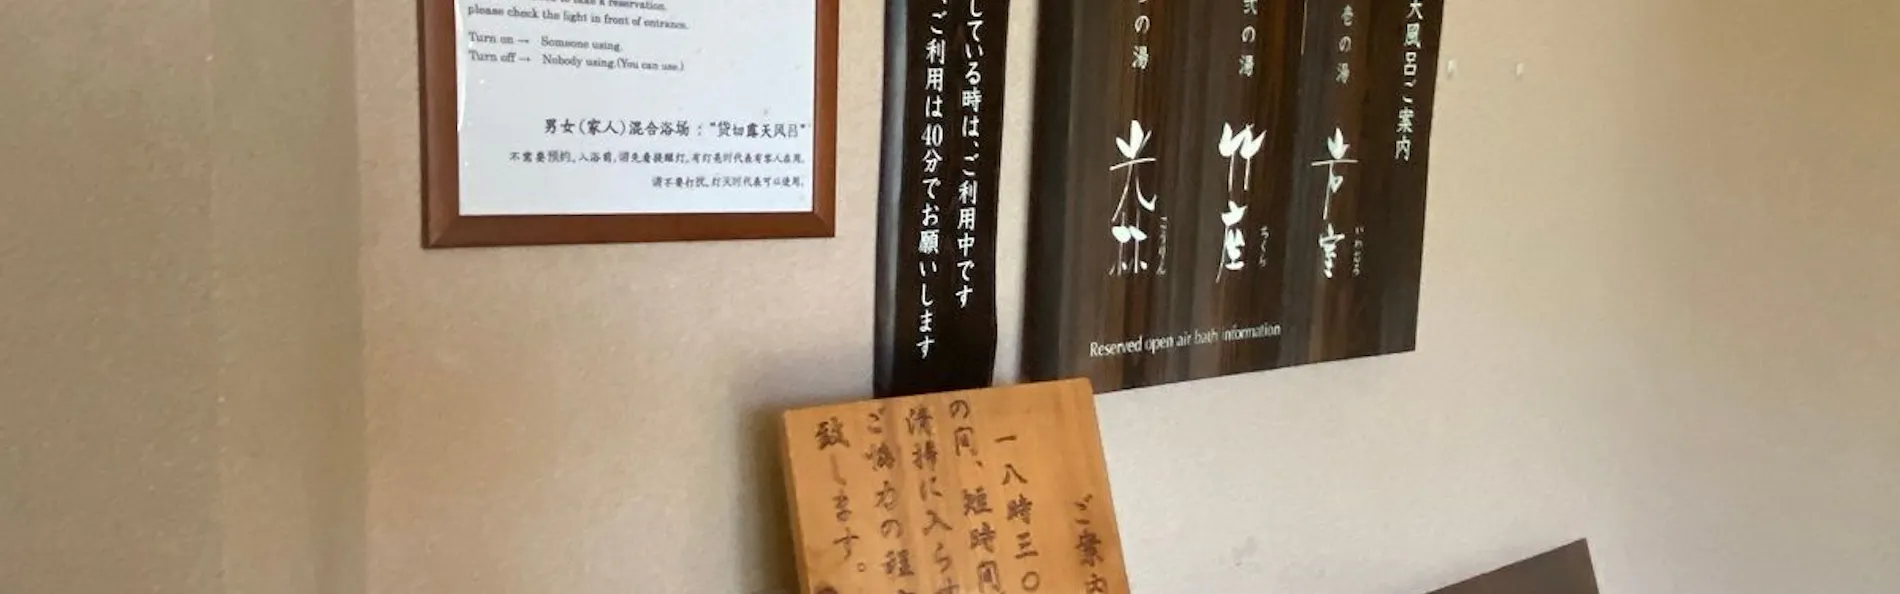 to make a reservation.
please check the light in front of entrance.
Turn on → Someone using.
Turn off → Nobody using.(You can use.)
男女(家人)混合浴场："貸切露天风吕"
不需要预约。入浴前，请先看提醒灯。有灯亮时代表有客人在用。
请不要打扰。灯灭时代表可以使用。
している時は、ご利用中です
ご利用は40分でお願いします
天風呂ご案内
壱の湯
岩室
いわむろ
弐の湯
竹座
ちくら
の湯
光林
こうりん
Reserved open air bath information
ご案内
一八時三〇
の間、短時間
清掃に入らせ
ご協力の程
致します。